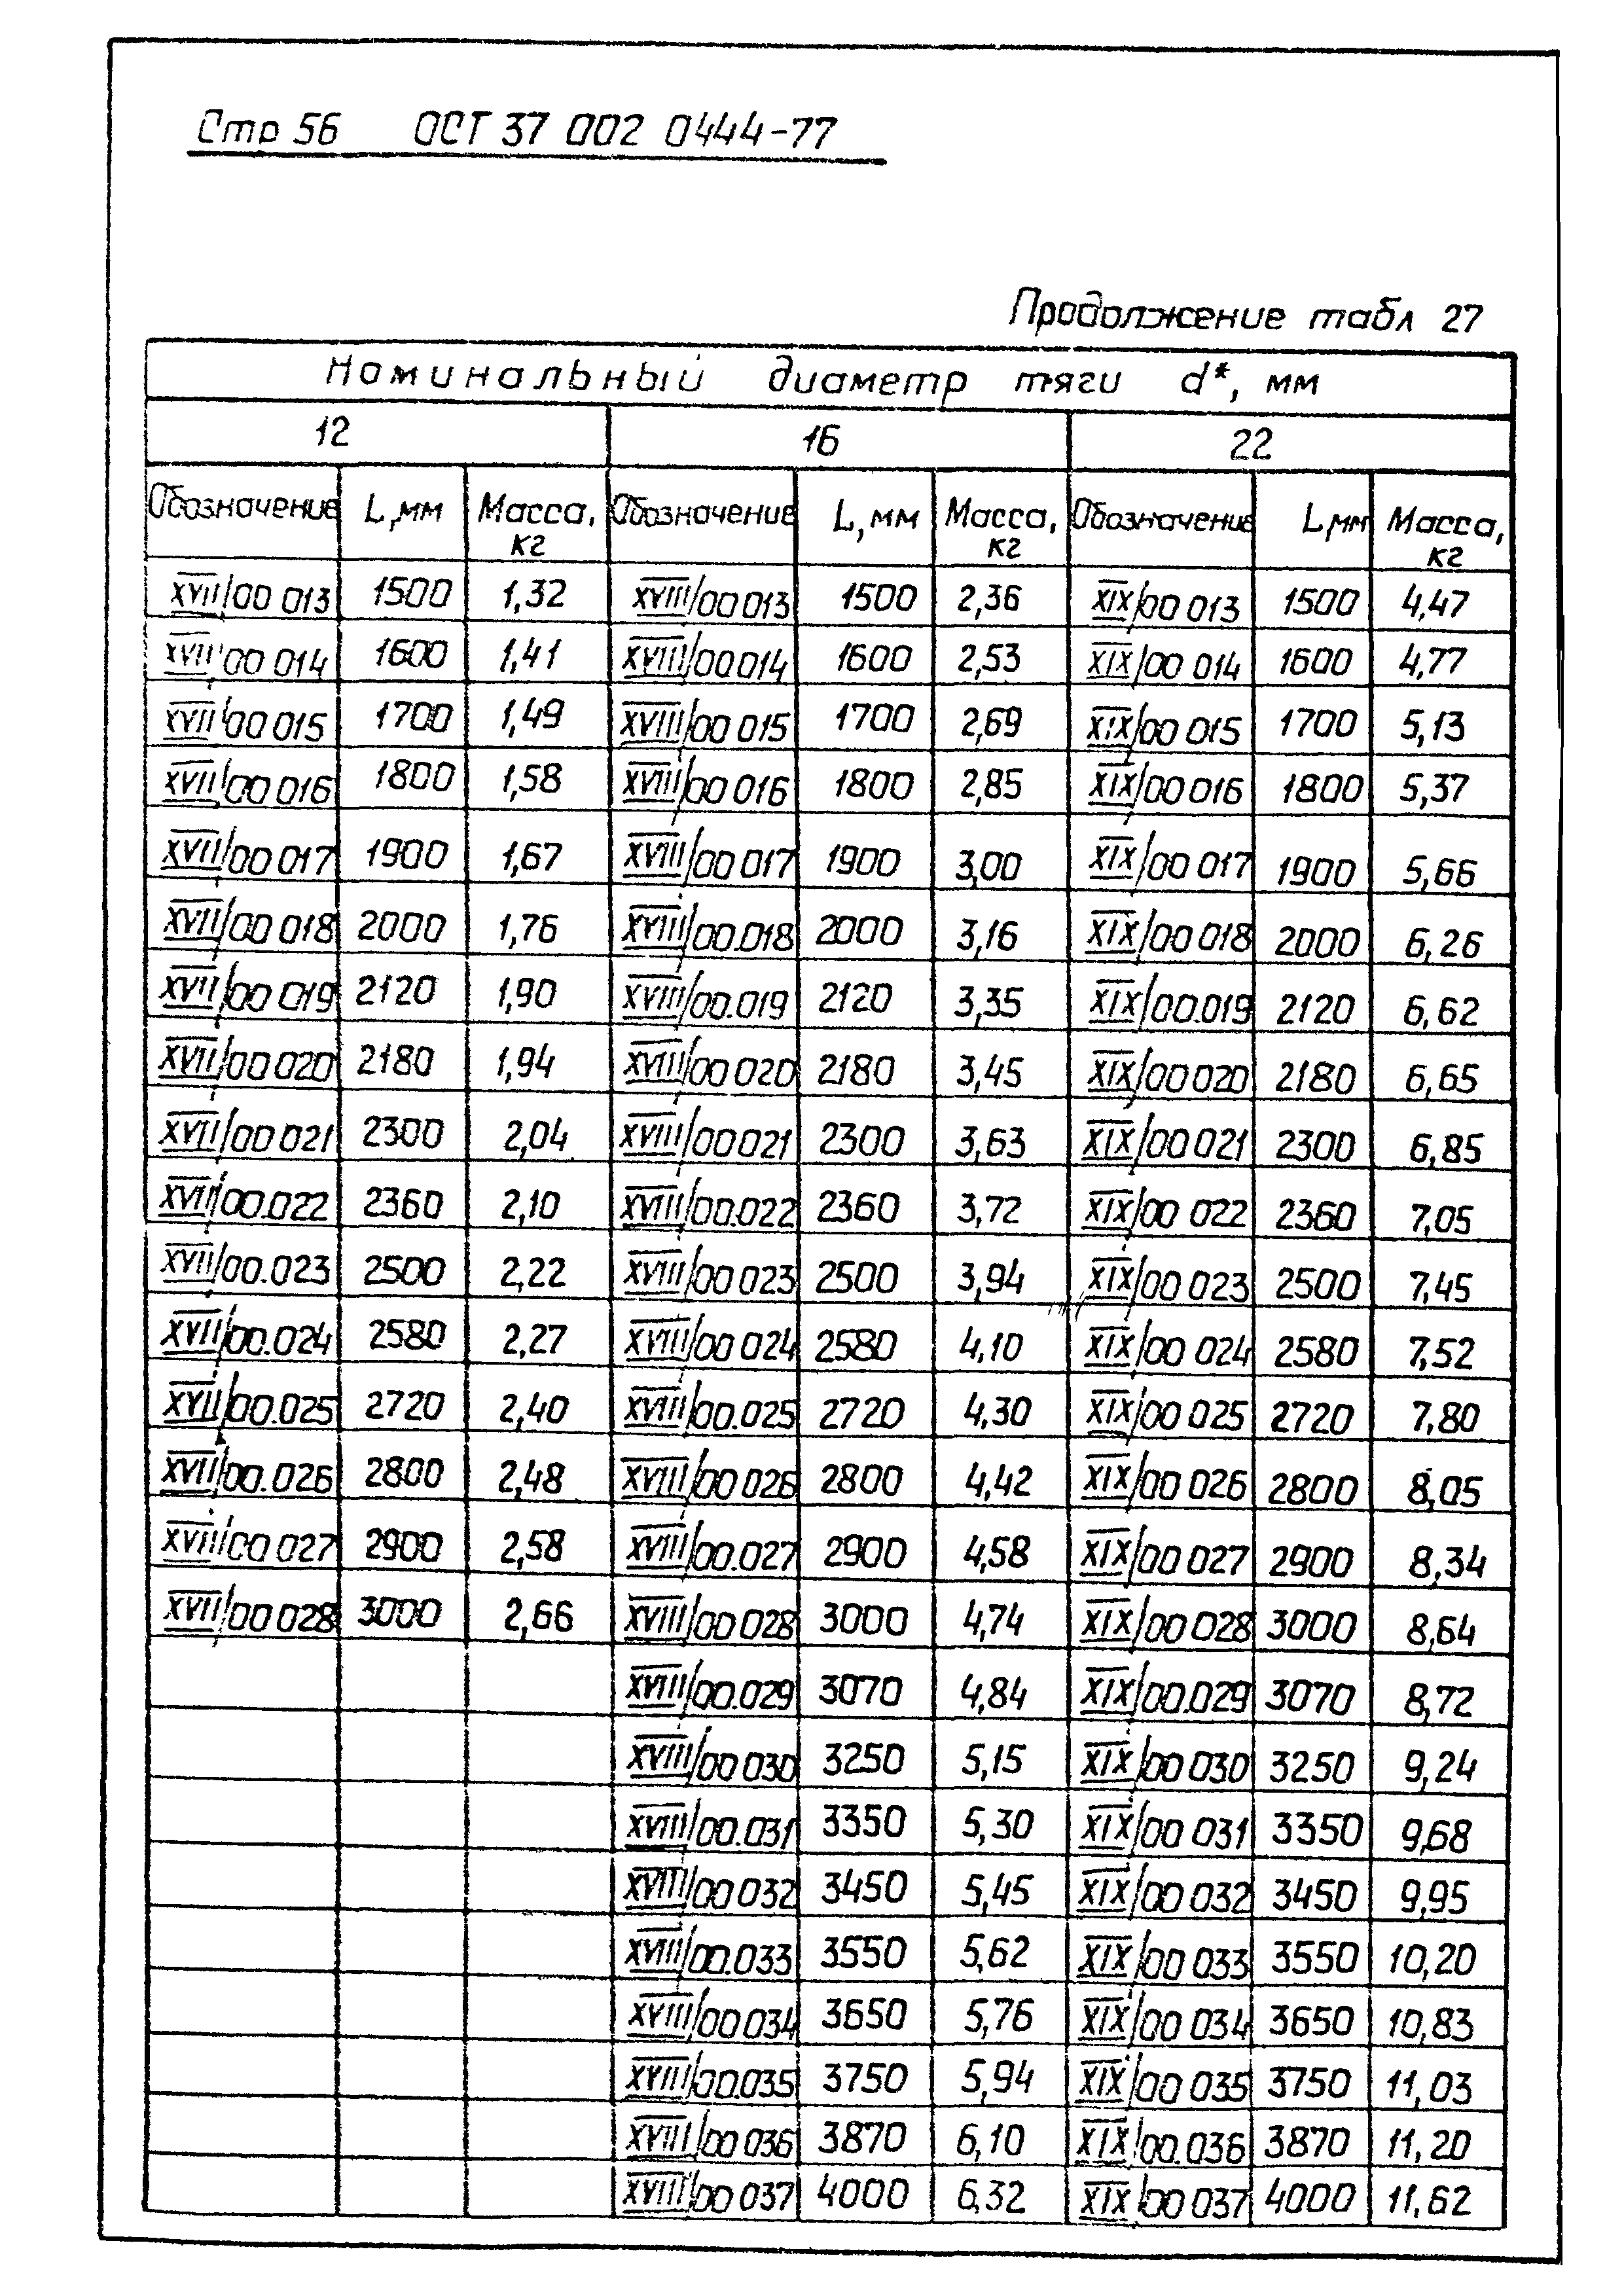 Стр 56 ОСТ 37 002 0444-77
Продолжение табл 27
Номинальный диаметр тяги d*, мм
12 16 22
Обозначение L, мм Масса, кг Обозначение L, мм Масса, кг Обозначение L, мм Масса, кг
XVII/00 013 1500 1,32 XVIII/00 013 1500 2,36 XIX/00 013 1500 4,47
XVII/00 014 1600 1,41 XVIII/00 014 1600 2,53 XIX/00 014 1600 4,77
XVII/00 015 1700 1,49 XVIII/00 015 1700 2,69 XIX/00 015 1700 5,13
XVII/00 016 1800 1,58 XVIII/00 016 1800 2,85 XIX/00 016 1800 5,37
XVII/00 017 1900 1,67 XVIII/00 017 1900 3,00 XIX/00 017 1900 5,66
XVII/00 018 2000 1,76 XVIII/00.018 2000 3,16 XIX/00 018 2000 6,26
XVII/00 019 2120 1,90 XVIII/00.019 2120 3,35 XIX/00.019 2120 6,62
XVII/00 020 2180 1,94 XVIII/00 020 2180 3,45 XIX/00 020 2180 6,65
XVII/00 021 2300 2,04 XVIII/00 021 2300 3,63 XIX/00 021 2300 6,85
XVII/00.022 2360 2,10 XVIII/00.022 2360 3,72 XIX/00 022 2360 7,05
XVII/00.023 2500 2,22 XVIII/00 023 2500 3,94 XIX/00 023 2500 7,45
XVII/00.024 2580 2,27 XVIII/00 024 2580 4,10 XIX/00 024 2580 7,52
XVII/00.025 2720 2,40 XVIII/00.025 2720 4,30 XIX/00 025 2720 7,80
XVII/00.026 2800 2,48 XVIII/00 026 2800 4,42 XIX/00 026 2800 8,05
XVII/00 027 2900 2,58 XVIII/00.027 2900 4,58 XIX/00 027 2900 8,34
XVII/00 028 3000 2,66 XVIII/00 028 3000 4,74 XIX/00 028 3000 8,64
XVIII/00.029 3070 4,84 XIX/00.029 3070 8,72
XVIII/00 030 3250 5,15 XIX/00 030 3250 9,24
XVIII/00.031 3350 5,30 XIX/00 031 3350 9,68
XVIII/00 032 3450 5,45 XIX/00 032 3450 9,95
XVIII/00.033 3550 5,62 XIX/00 033 3550 10,20
XVIII/00 034 3650 5,76 XIX/00 034 3650 10,83
XVIII/00.035 3750 5,94 XIX/00 035 3750 11,03
XVIII/00 036 3870 6,10 XIX/00.036 3870 11,20
XVIII/00 037 4000 6,32 XIX/00 037 4000 11,62